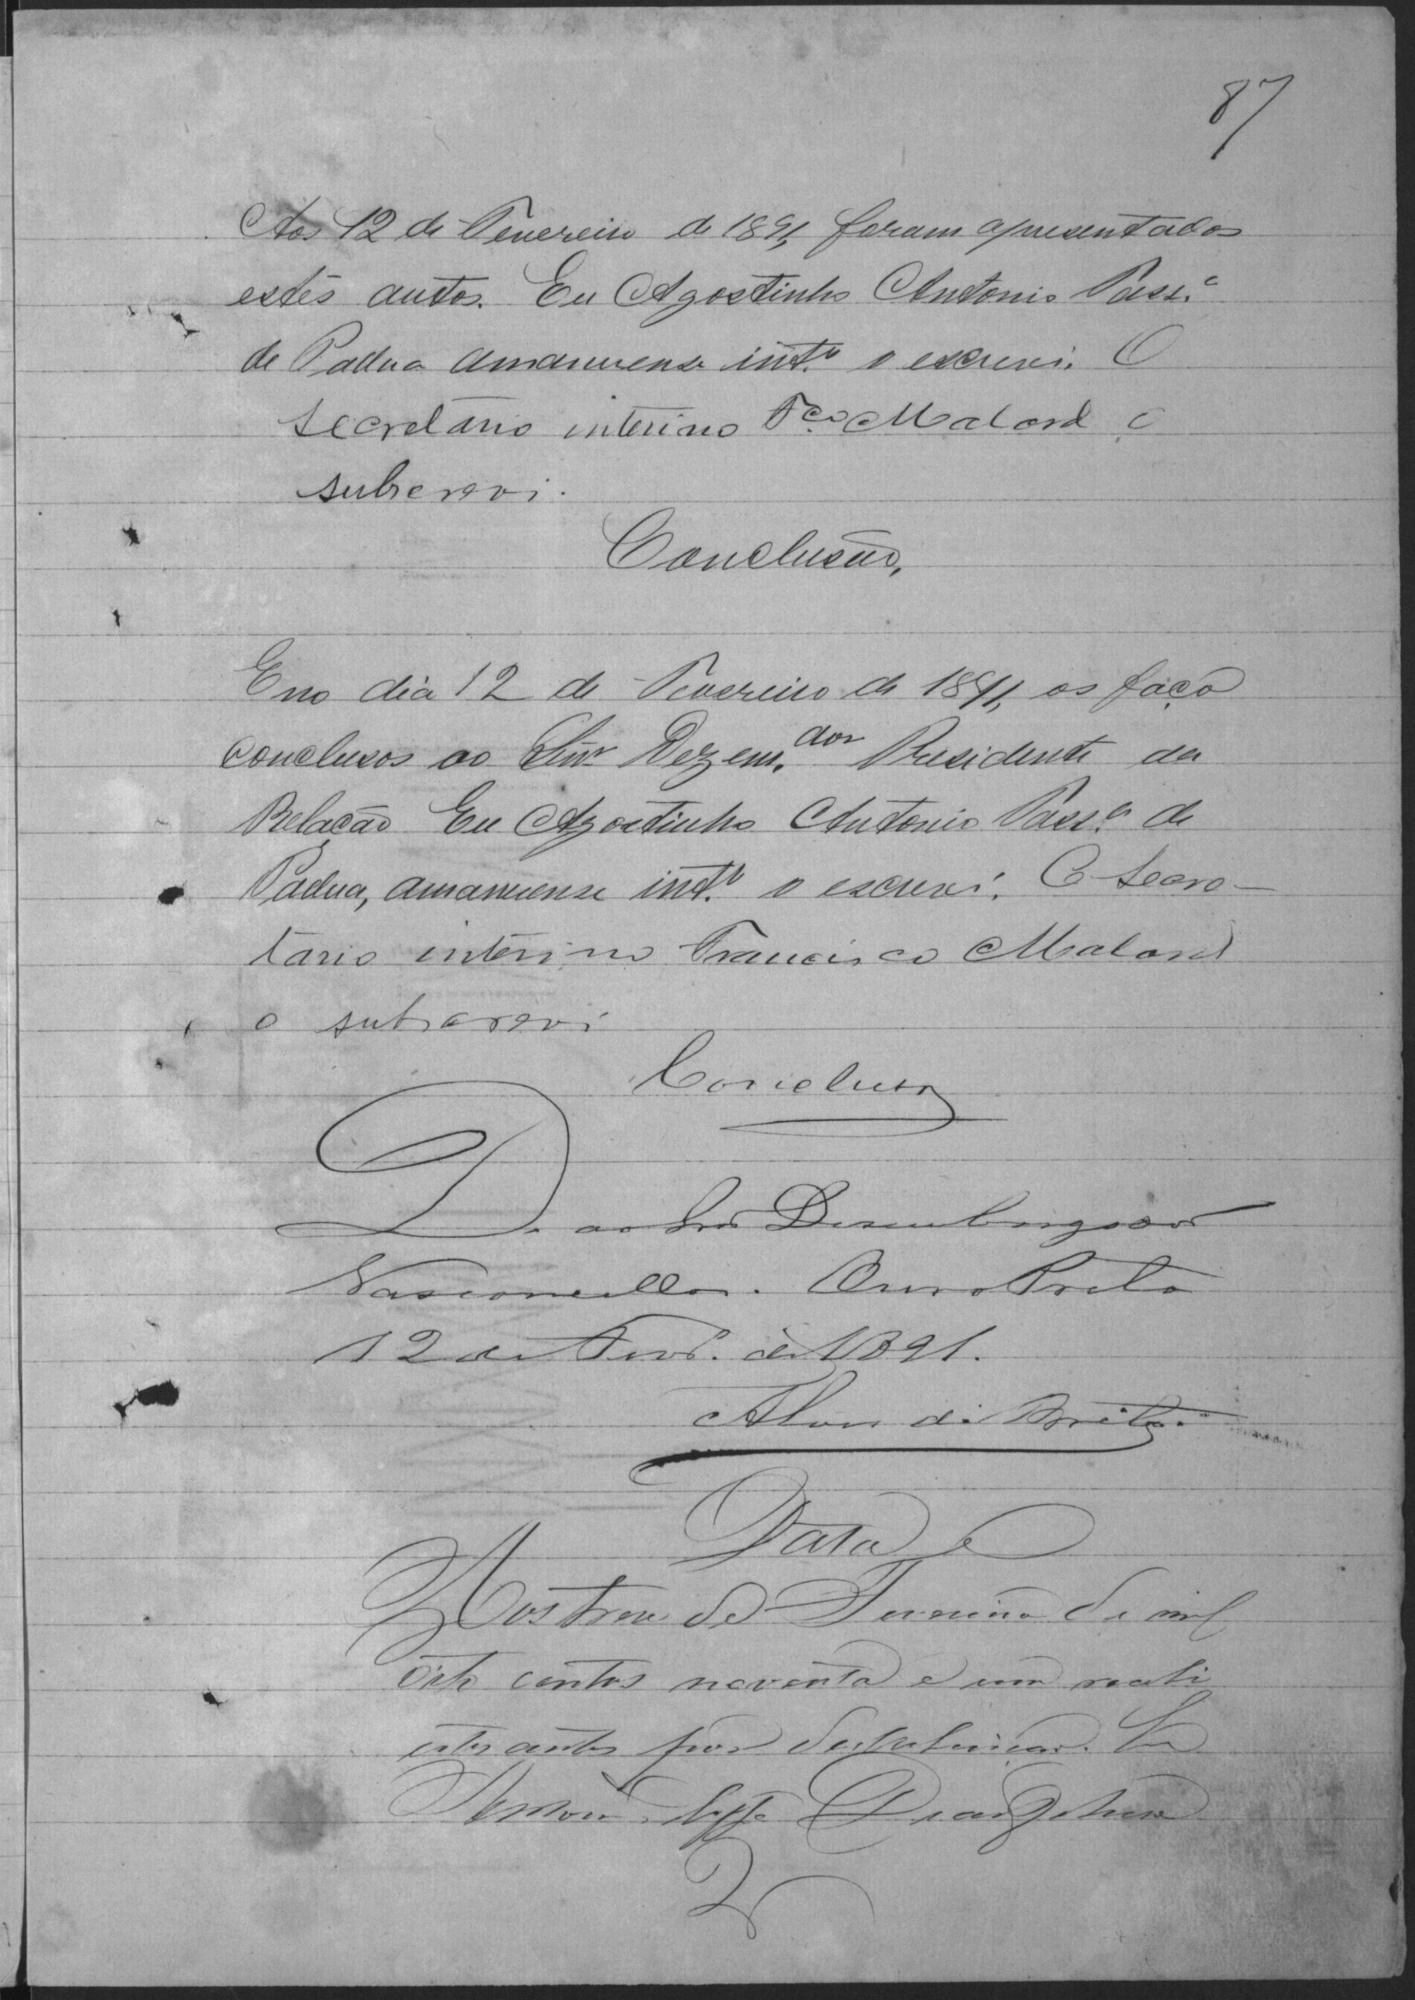 87
Aos 12 de Fevereiro de 1891, foram apresentados
estes autos. Eu Agostinho Antonio Pass.º
de Padua amanuense int.º o escrevi. O
secretario interino Fco Malard o
subscrevi.
Conclusão,
E no dia 12 de Fevereiro de 1891, os faço
conclusos ao Snr Dezem.dor Presidente da
Relação Eu Agostinho Antonio Pass.º de
Padua, amanuense int.º o escrevi. O Secre-
tario interino Francisco Malard
o subscrevi
Concluso
D. ao Snr Desembargador
Vasconcellos. Ouro Preto
12 de Fevr.º de 1891.
Alves de Brito.
Data
Aos treze de Fevereiro de mil
oito centos noventa e um recebi
estes autos por Eu